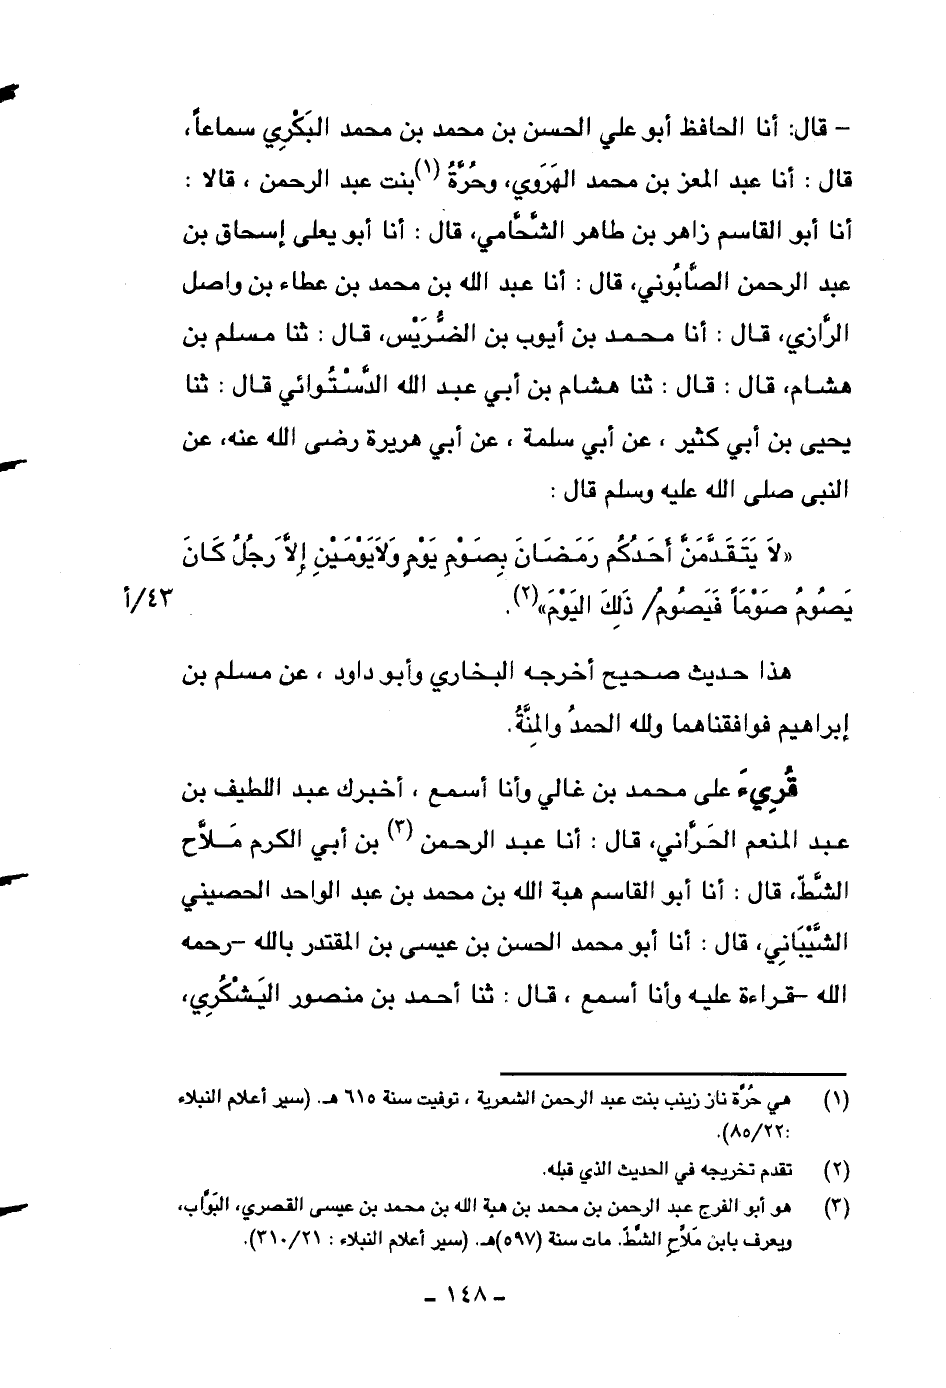 – قال: أنا الحافظ أبو علي الحسن بن محمد بن محمد البَكْرِي سماعاً،
قال : أنا عبد المعز بن محمد الهَرَوِي، وحُرَّةُ (١) بنت عبد الرحمن ، قالا :
أنا أبو القاسم زاهر بن طاهر الشَّحَّامي، قال : أنا أبو يعلى إسحاق بن
عبد الرحمن الصَّابُوني، قال : أنا عبد الله بن محمد بن عطاء بن واصل
الرَّازي، قال : أنا محمد بن أيوب بن الضُّرَيْس، قال : ثنا مسلم بن
هشام، قال : قال : ثنا هشام بن أبي عبد الله الدَّسْتُوائي قال : ثنا
يحيى بن أبي كثير ، عن أبي سلمة ، عن أبي هريرة رضى الله عنه، عن
النبى صلى الله عليه وسلم قال :
«لاَ يَتَقَدَّمَنَّ أَحَدُكُم رَمَضَانَ بِصَوْمِ يَوْمٍ وَلاَيَوْمَيْنِ إِلاَّ رَجلُ كَانَ
يَصُومُ صَوْمَاً فَيَصُومُ/ ذَلِكَ اليَوْمَ»(٢).
٤٣/أ
هذا حديث صحيح أخرجه البخاري وأبو داود ، عن مسلم بن
إبراهيم فوافقناهما ولله الحمدُ والمِنَّةُ.
قُرِيءَ على محمد بن غالي وأنا أسمع ، أخبرك عبد اللطيف بن
عبد المنعم الحَرَّاني، قال : أنا عبد الرحمن (٣) بن أبي الكرم مَلاَّح
الشَّطّ، قال : أنا أبو القاسم هبة الله بن محمد بن عبد الواحد الحصيني
الشَّيْبَانِي، قال : أنا أبو محمد الحسن بن عيسى بن المقتدر بالله –رحمه
الله –قراءة عليه وأنا أسمع ، قال : ثنا أحمد بن منصور اليَشْكُرِي،
(١) هي حُرَّة ناز زينب بنت عبد الرحمن الشعرية ، توفيت سنة ٦١٥ هـ. (سير أعلام النبلاء
:٨٥/٢٢).
(٢) تقدم تخريجه في الحديث الذي قبله.
(٣) هو أبو الفرج عبد الرحمن بن محمد بن هبة الله بن محمد بن عيسى القصري، البَوَّاب،
ويعرف بابن مَلاَّحِ الشَّطّ. مات سنة (٥٩٧)هـ. (سير أعلام النبلاء : ٣١٠/٢١).
– ١٤٨ –